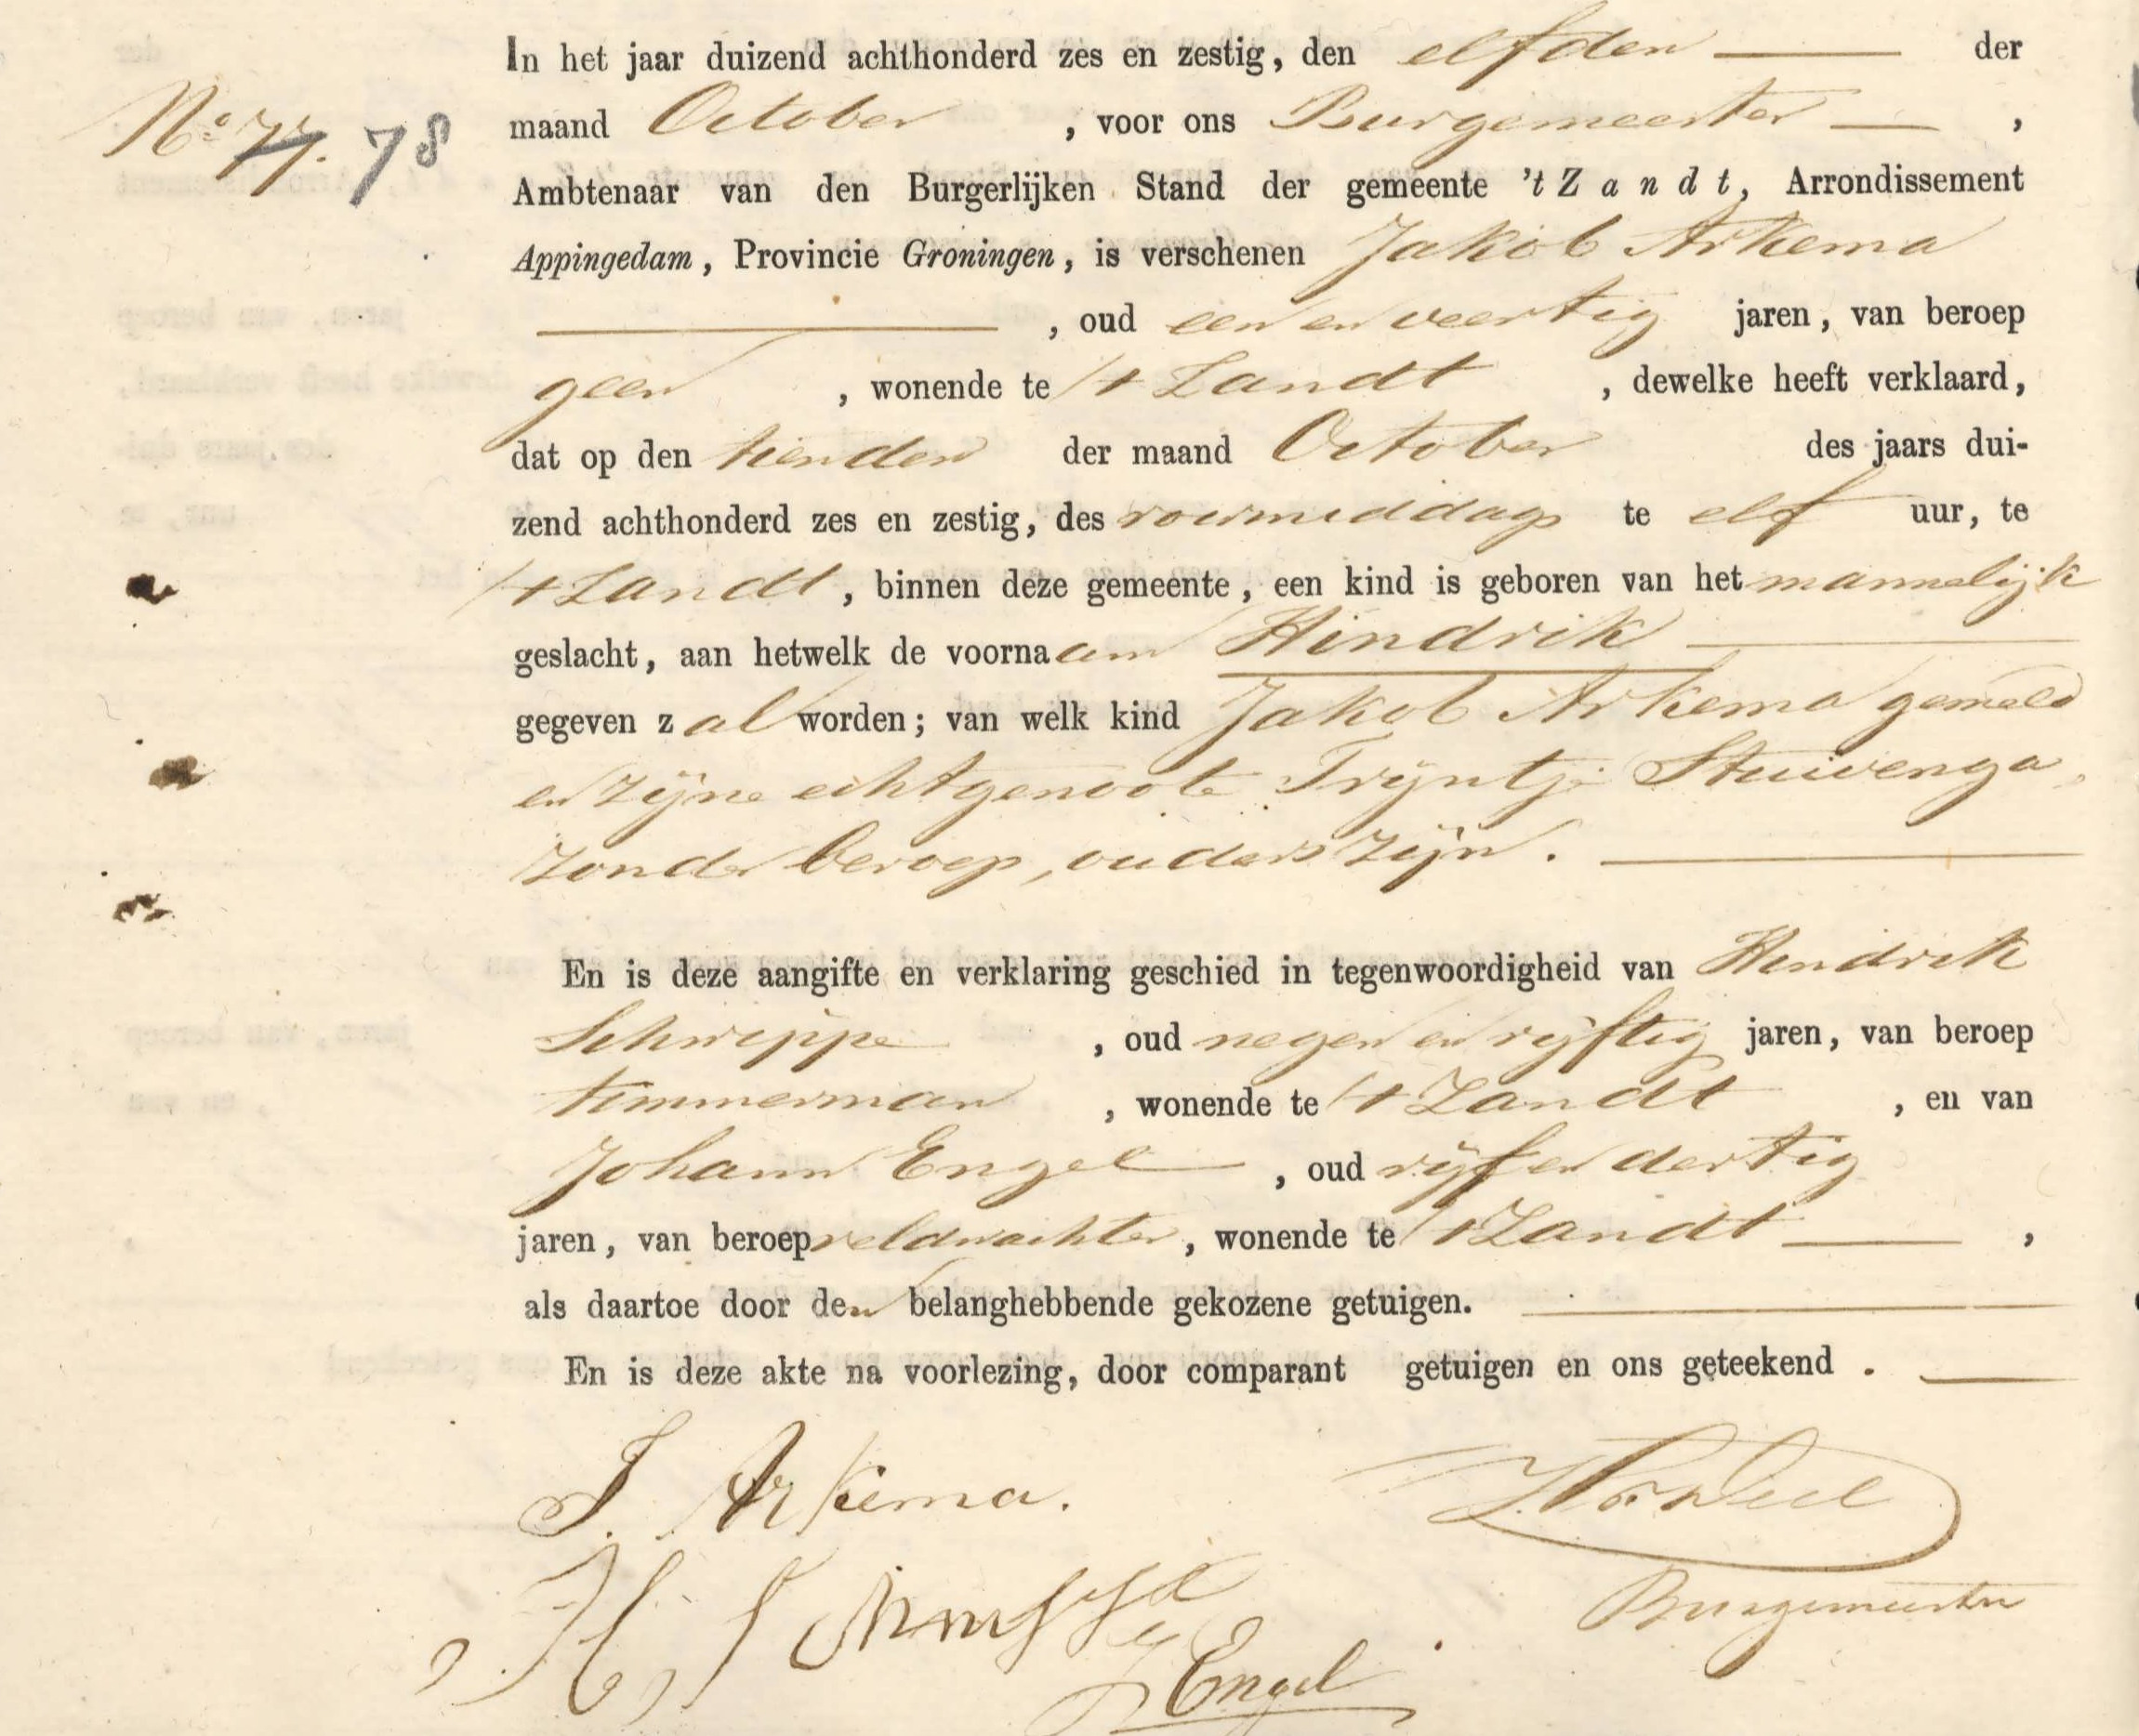 In het jaar duizend achthonderd zes en zestig, den elfden der
No 77. 78
maand October, voor ons Burgemeester,
Ambtenaar van den Burgerlijken Stand der gemeente 't Zandt, Arrondissement
Appingedam, Provincie Groningen, is verschenen Jakob Arkema
, oud een en veertig jaren, van beroep
geen, wonende te 't Zandt, dewelke heeft verklaard,
dat op den tienden der maand October des jaars dui-
zend achthonderd zes en zestig, des voormiddags te elf uur, te
't Zandt, binnen deze gemeente, een kind is geboren van het mannelijk
geslacht, aan hetwelk de voornaam Hindrik
gegeven zal worden; van welk kind Jakob Arkema gemeld
en zijne echtgenoote Trijntje Stuivenga,
zonder beroep, ouders zijn.
En is deze aangifte en verklaring geschied in tegenwoordigheid van Hendrik
Schreppe, oud negen en vijftig jaren, van beroep
timmerman, wonende te 't Zandt, en van
Johann Engel, oud vijf en dertig
jaren, van beroep veldwachter, wonende te 't Zandt,
als daartoe door den belanghebbende gekozene getuigen.
En is deze akte na voorlezing, door comparant getuigen en ons geteekend.
J. Arkema.
H
Burgemeester
J Engel